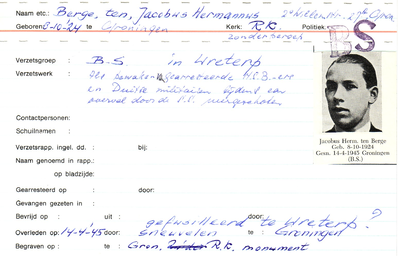 Naam etc.: Berge, ten, Jacobus Hermannus
Geboren: 8-10-24 te Groningen Kerk: R.K. Politiek:
zonder beroep
BS
Verzetsgroep : B.S. in Ureterp
Verzetswerk : Als bewaker gearresteerde N.S.B.-ers
en Duitse militairen tijdens een
overval door de
Contactpersonen:
Schuilnamen :
Verzetsrapp. ingel. dd. : bij:
Naam genoemd in rapp.:
op bladzijde:
Jacobus Herm. ten Berge
Geb. 8-10-1924
Gesn. 14-4-1945 Groningen
(B.S.)
Gearresteerd op : door:
Gevangen gezeten in :
Bevrijd op : uit : door:
gefusilleerd te Ureterp?
Overleden op: 14-4-'45 door: sneuvelen te Groningen
Begraven op : te : Gron. R.K. monument